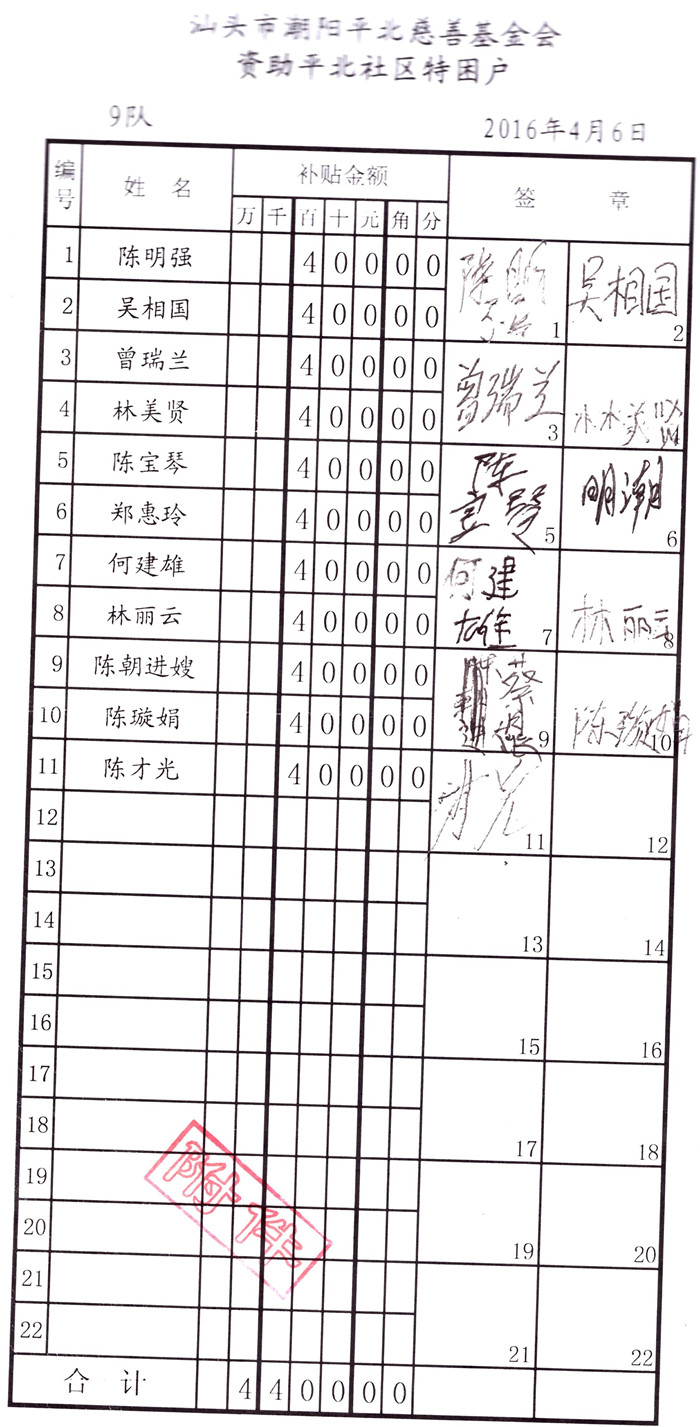 汕头市潮阳平北慈善基金会
资助平北社区特困户
9队 2016年4月6日
编号 姓 名 补贴金额 签 章
万 千 百 十 元 角 分
1 陈明强 4 0 0 0 0
2 吴相国 4 0 0 0 0
3 曾瑞兰 4 0 0 0 0
4 林美贤 4 0 0 0 0
5 陈宝琴 4 0 0 0 0
6 郑惠玲 4 0 0 0 0
7 何建雄 4 0 0 0 0
8 林丽云 4 0 0 0 0
9 陈朝进嫂 4 0 0 0 0
10 陈璇娟 4 0 0 0 0
11 陈才光 4 0 0 0 0
12
13
14
15
16
17
18
19
20
21
22
合 计 4 4 0 0 0 0
1 吴相国 2
曾瑞兰 3 林美贤 4
陈宝琴 5 明潮 6
何建雄 7 林丽云 8
蔡 9 陈璇娟 10
11 12
13 14
15 16
17 18
19 20
21 22
附件